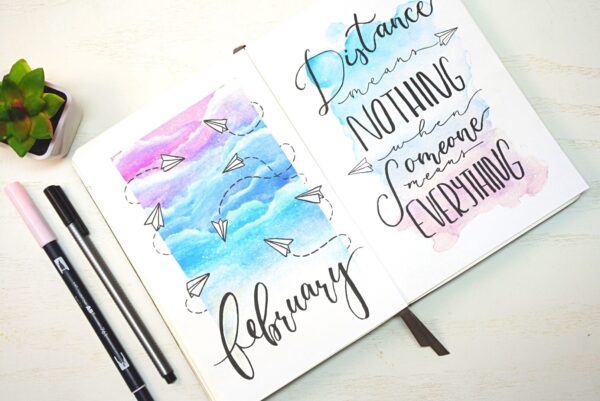 february
Distance
means
NOTHING
when
Someone
means
EVERYTHING